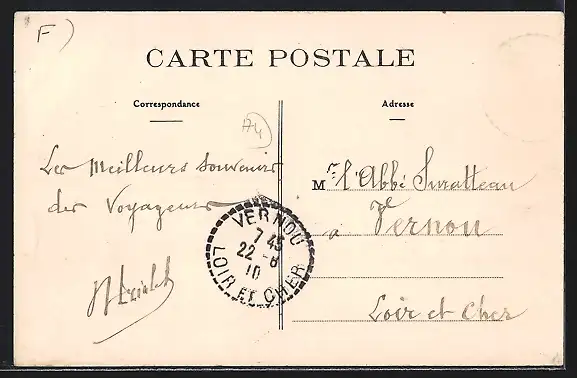 F)
CARTE POSTALE
Correspondance
Adresse
A4
Les Meilleurs Souvenirs
des Voyageurs
Mr. l'Abbé Suratteau
à Vernou
Loir et Cher
VERNOU
7 45
22 -8
10
LOIR ET CHER